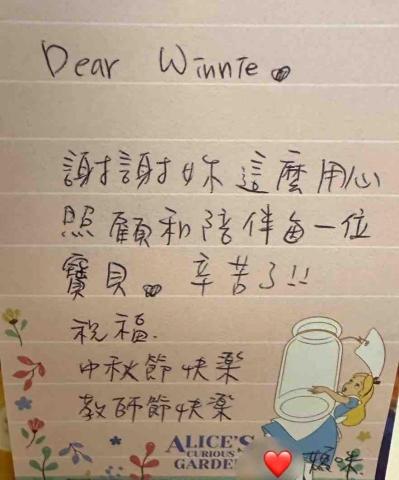 Dear Winnie
謝謝妳這麼用心
照顧和陪伴每一位
寶貝。辛苦了!!
祝福.
中秋節快樂
教師節快樂
ALICE'S
CURIOUS
GARDE
媽咪